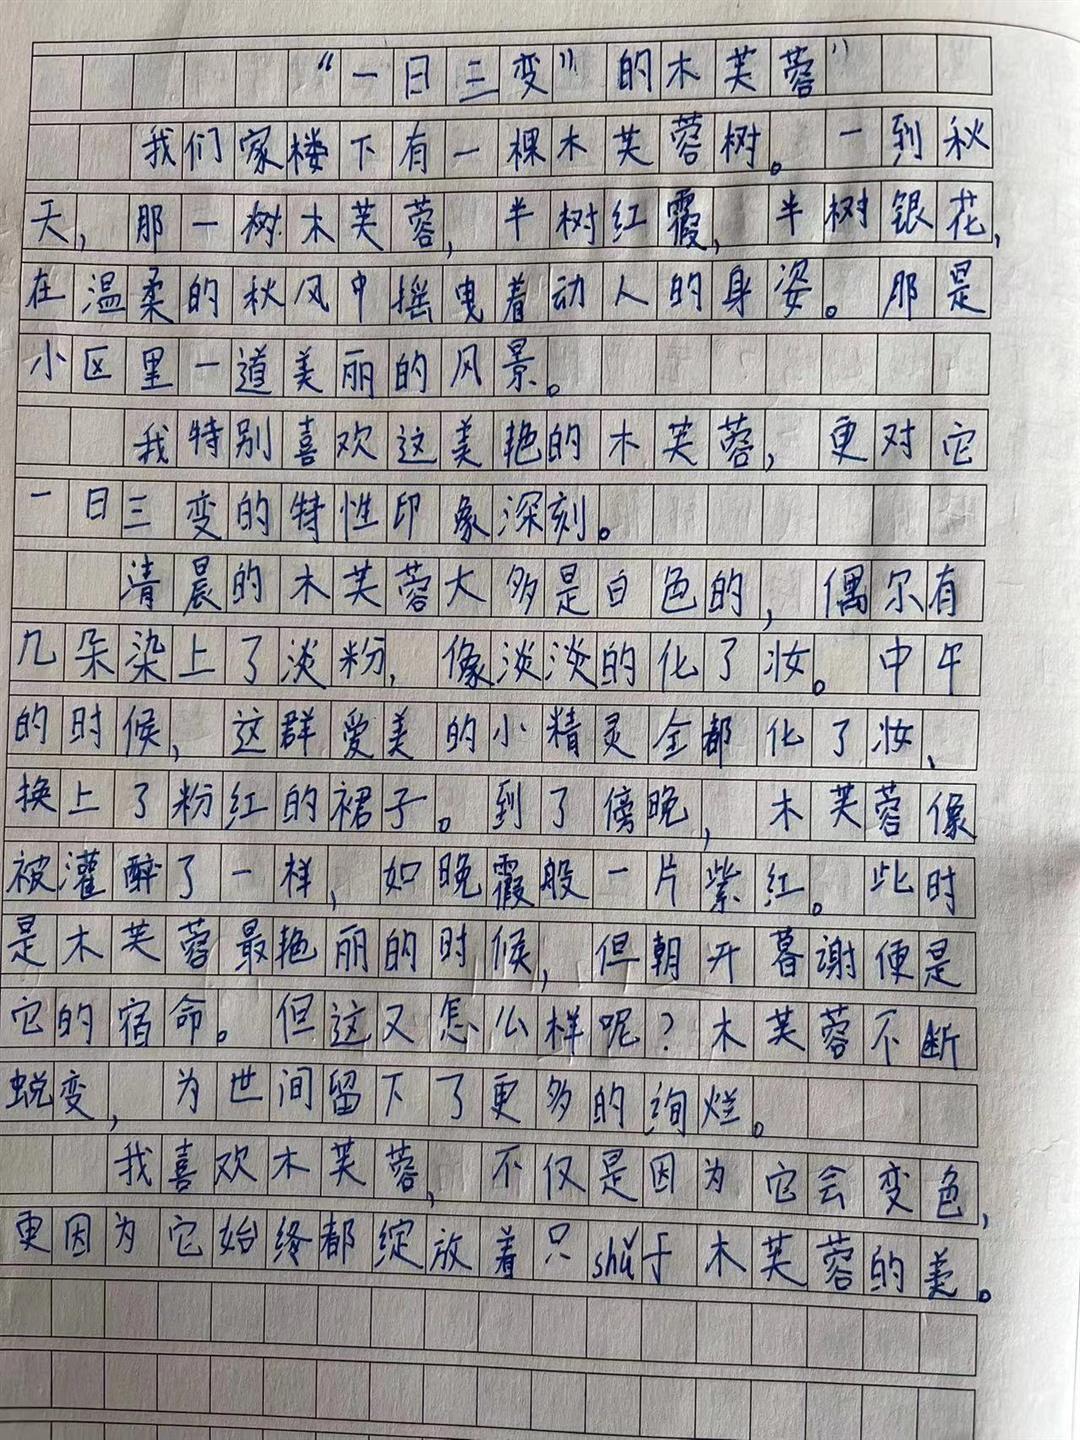 “一日三变”的木芙蓉”
我们家楼下有一棵木芙蓉树。一到秋
天，那一树木芙蓉，半树红霞，半树银花，
在温柔的秋风中摇曳着动人的身姿。那是
小区里一道美丽的风景。
我特别喜欢这美艳的木芙蓉，更对它
一日三变的特性印象深刻。
清晨的木芙蓉大多是白色的，偶尔有
几朵染上了淡粉，像淡淡的化了妆。中午
的时候，这群爱美的小精灵全都化了妆、
换上了粉红的裙子。到了傍晚，木芙蓉像
被灌醉了一样，如晚霞般一片紫红。此时
是木芙蓉最艳丽的时候，但朝开暮谢便是
它的宿命。但这又怎么样呢？木芙蓉不断
蜕变，为世间留下了更多的绚烂。
我喜欢木芙蓉，不仅是因为它会变色，
更因为它始终都绽放着只shǔ于木芙蓉的美。